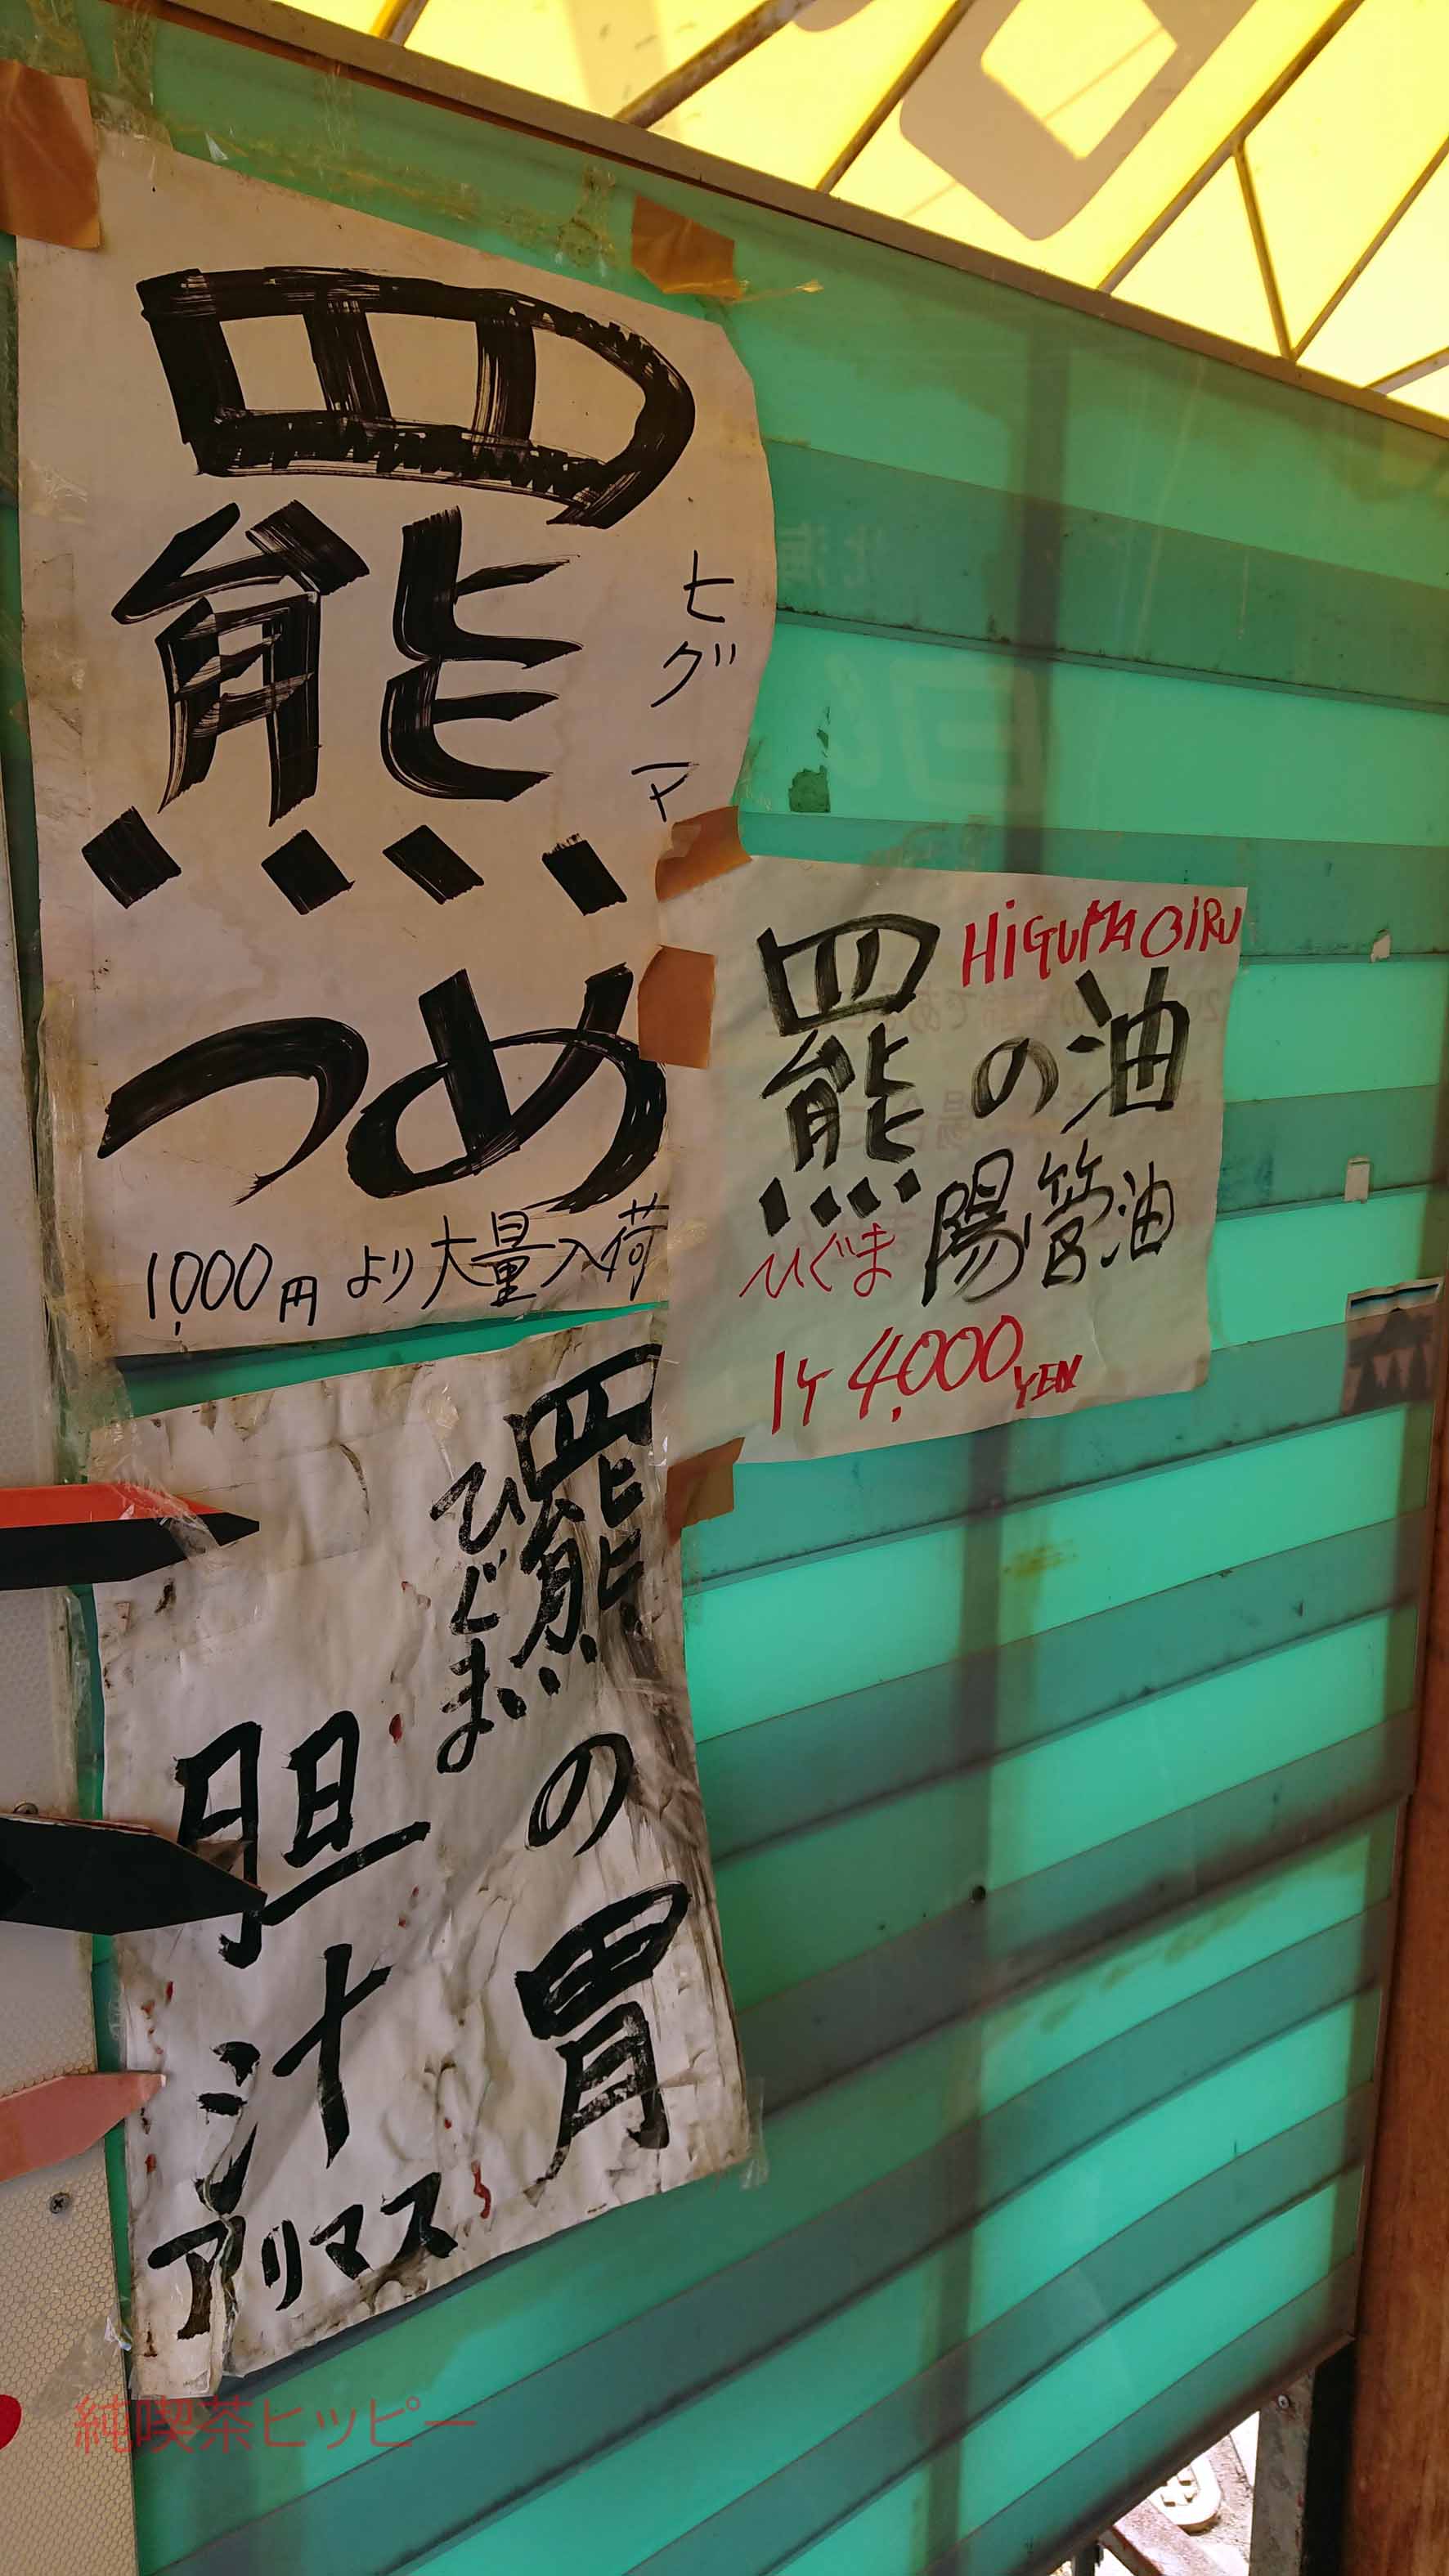 羆
ヒグマ
つめ
1,000円より大量入荷
HiGUMA OiRU
羆の油
ひぐま
陽管油
1ケ4,000YEN
羆の胃
ひぐま
胆汁
アリマス
純喫茶ヒッピー